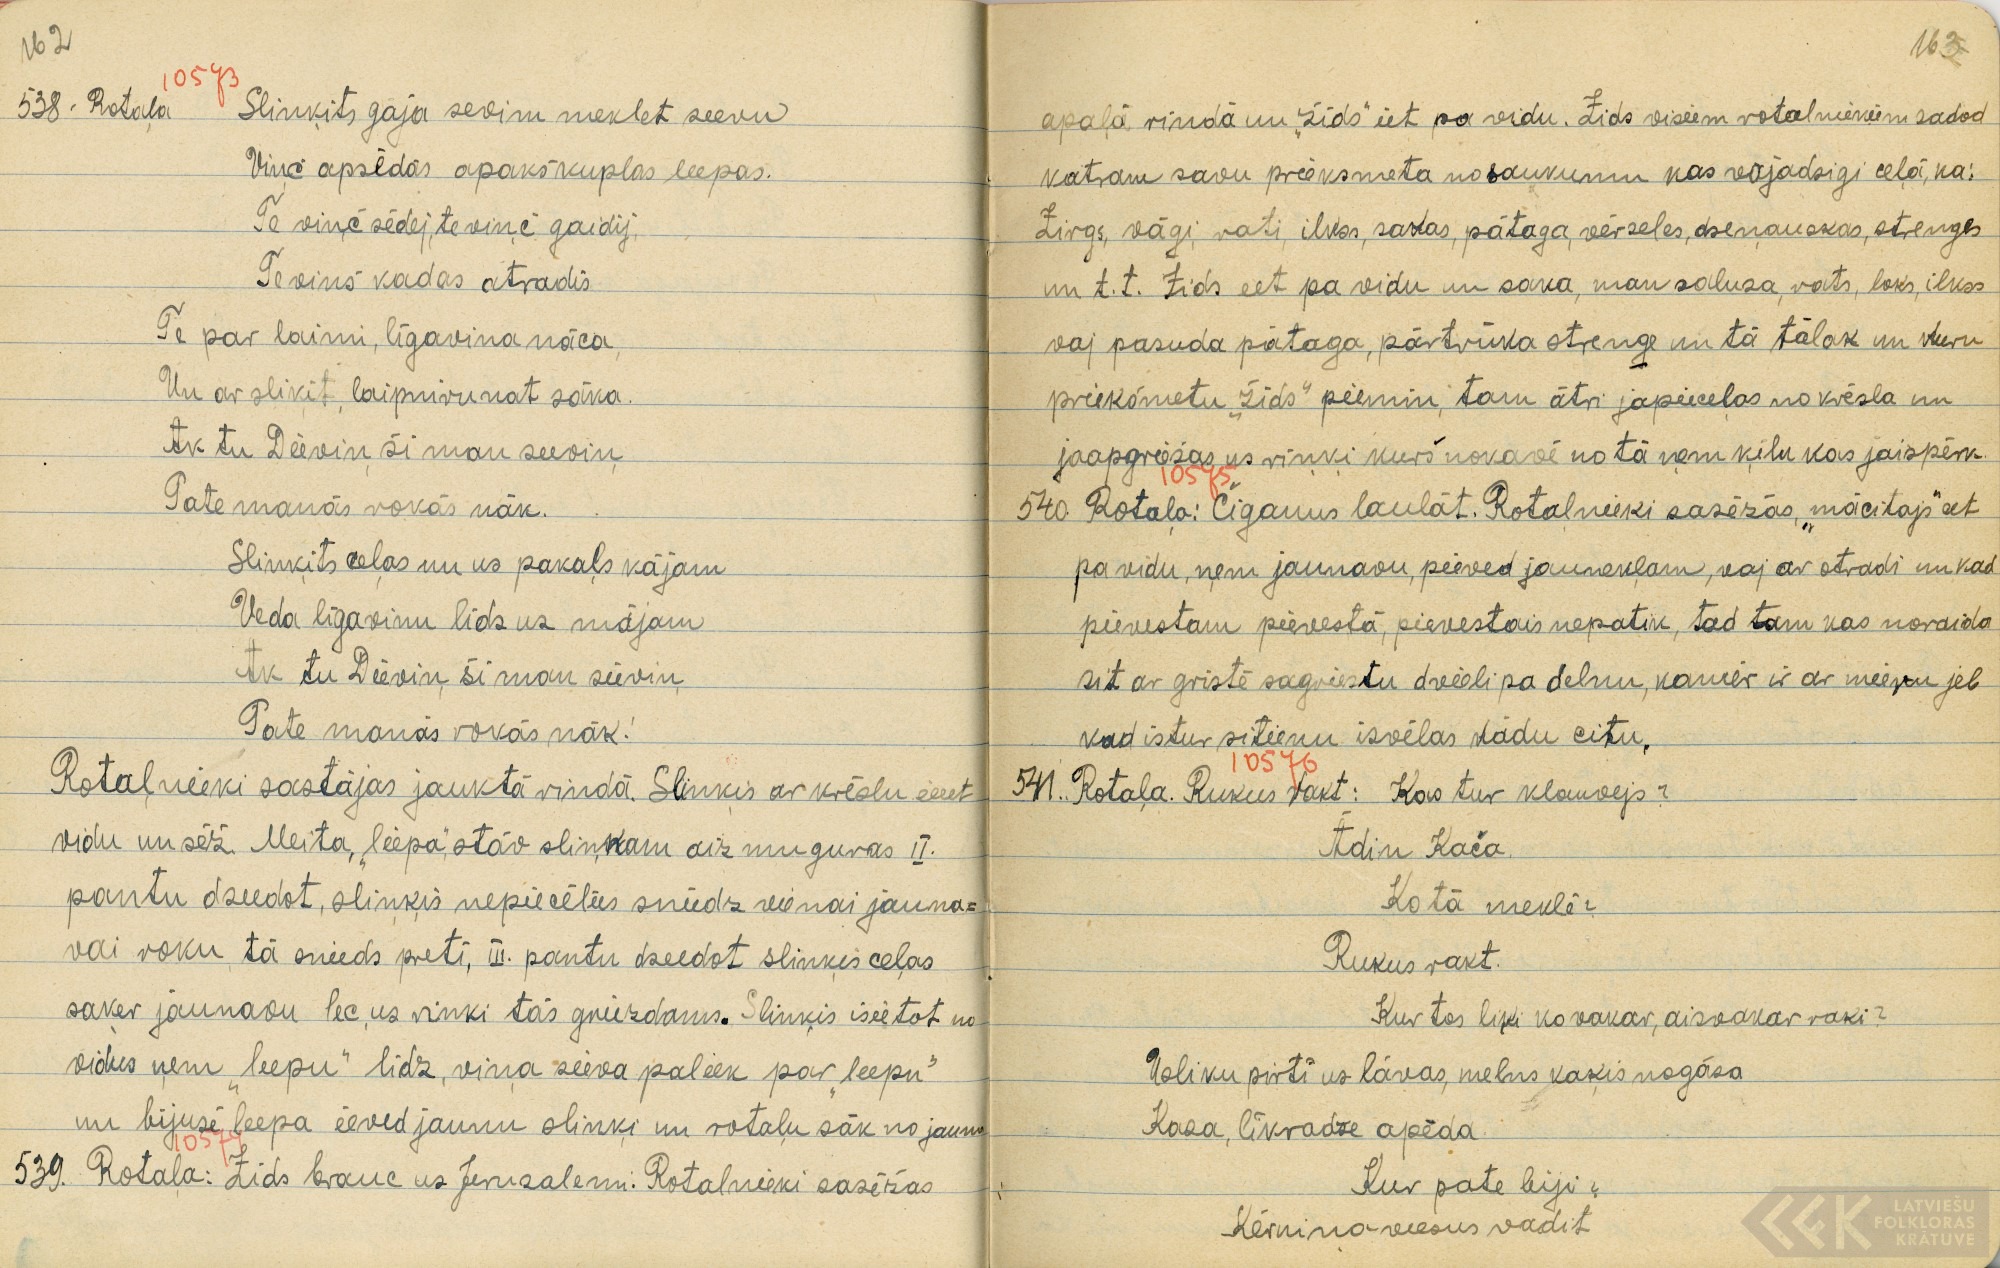 162
10573
538. Rotaļa Slinķits gāja sevim meklet seevu
Viņč apsēdās apakš kuplas leepas.
Te viņč sēdej, te viņč gaidij,
Te vinš kadas atradis
Te par laimi, līgavina nāca,
Un ar slikit, laipni runat sāka.
Ak tu Dievin, ši man seevin,
Pate manās rokās nāk.
Slinķits ceļas un us pakaļs kājam
Veda līgavinu līdz uz mājam
Ak tu Dievin, ši man sievin,
Pate manās rokās nāk!
Rotaļnieki sastājas jauktā rindā. Slinkis ar krēslu ieeet
vidu un sēž. Meita, „liepa", stāv sliņķam aiz muguras II.
pantu dseedot, sliņķis nepiecēlies sniedz vienai jauna=
vai roku, tā sneeds pretī, III. pantu dseedot sliņķis ceļas
saķer jaunavu lec, us rinki tās griezdams. Sliņķis iseetot no
vidus ņem „leepu" lidz, viņa sieva paleek par „leepu"
un bijusē leepa ieved jaunu sliņķi un rotaļu sāk no jauna
10574
539. Rotaļa: Žids brauc us Jeruzalemi: Rotaļnieki sasēžas
163
apaļā rindā un „žids" iet pa vidu. Žids viseem rotaļniekiem sadod
katram savu prieksmeta nosaukumu kas vajadsigi ceļā, ka:
Zirgs, vāgi, rati, ilkss, sakas, pātaga, vērseles, dseņauskas, strenges
un t.t. Žids eet pa vidu un saka, man salusa, rats, loks, ilkss
vaj pasuda pātaga, pārtrūka strenge un tā tālak un kuru
priekšmetu „žids" piemin, tam ātri japieceļas no krēsla un
jaapgriežas us riņķi kurš nokavē no tā ņem ķilu kas jaispērk.
10575
540. Rotaļa: Čiganus laulāt. Rotaļnieki sasēžās, „mācitajs" eet
pa vidu, ņem jaunavu, pieved jauneklam, vaj ar otradi un kad
pievestam pievestā, pievestais nepatik, tad tam kas noraida
sit ar gristē sagriestu dvieli pa delnu, kamēr ir ar mieru jeb
kad istur sitienu isvēlas kādu citu.
10576
541. Rotaļa. Rukus rakt: Kas tur klauvejs?
Ādin Kača.
Ko tā meklē?
Rukus rakt.
Kur tos liki ko vakar, aisvakar raki?
Usliku pirtī us lāvas, melns kakis nogāsa
Kasa, līkradze apēda
Kur pate biji?
Kērnina veesus vadit
LATVIEŠU
FOLKLORAS
KRĀTUVE